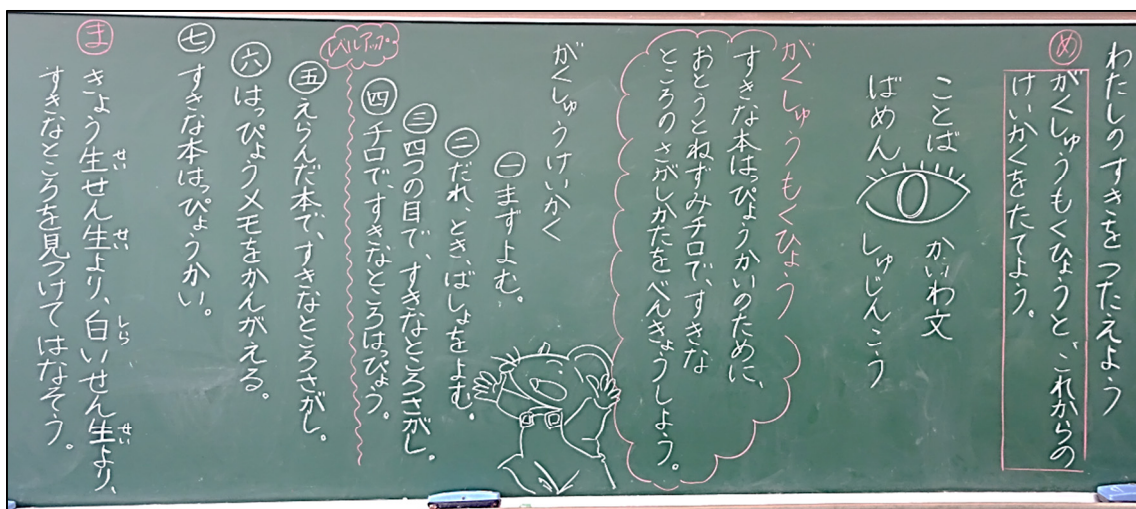 わたしのすきをつたえよう
め
がくしゅうもくひょうと、これからの
けいかくをたてよう。
ことば
かいわ文
ばめん
しゅじんこう
がくしゅうもくひょう
すきな本はっぴょうかいのために、
おとうとねずみチロで、すきな
ところのさがしかたをべんきょうしよう。
がくしゅうけいかく
一 まずよむ。
二 だれ、とき、ばしょをよむ。
三 四つの目で、すきなところさがし。
四 チロで、すきなところはっぴょう。
レベルアップ
五 えらんだ本で、すきなところさがし。
六 はっぴょうメモをかんがえる。
七 すきな本はっぴょうかい。
ま
きょう生せん生より、白いせん生より、
せい せい しら せい
すきなところを見つけてはなそう。